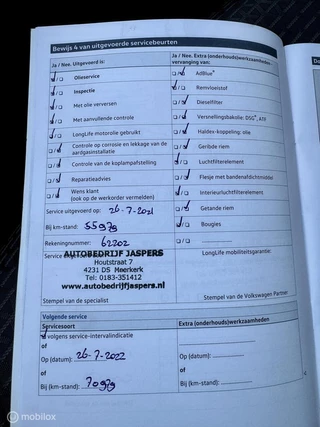 Bewijs 4 van uitgevoerde servicebeurten
Ja / Nee. Uitgevoerd is:
Olieservice
Inspectie
Met olie verversen
Met aanvullende controle
LongLife motorolie gebruikt
Controle op corrosie en lekkage van de aardgasinstallatie
Controle van de koplampafstelling
Reparatieadvies
Wens klant
(ook op de werkorder vermelden)
Service uitgevoerd op: 26-7-2021
Bij km-stand: 55979
Rekeningnummer: 62202
AUTOBEDRIJF JASPERS
Houtstraat 7
4231 DS Meerkerk
Tel: 0183-351412
www.autobedrijfjaspers.nl
Stempel van de specialist
Ja / Nee. Extra (onderhouds)werkzaamheden
vervanging van:
AdBlue®
Remvloeistof
Dieselfilter
Versnellingsbakolie: DSG®, ATF
Haldex-koppeling: olie
Geribde riem
Luchtfilterelement
Flesje met bandenafdichtmiddel
Interieurluchtfilterelement
Getande riem
Bougies
LongLife mobiliteitsgarantie:
Stempel van de Volkswagen Partner
Volgende service
Servicesoort
volgens service-intervalindicatie
of
Op (datum): 26-7-2022
of
Bij (km-stand): 70979
Extra (onderhouds)werkzaamheden
Op (datum):
of
Bij (km-stand):
mobilox